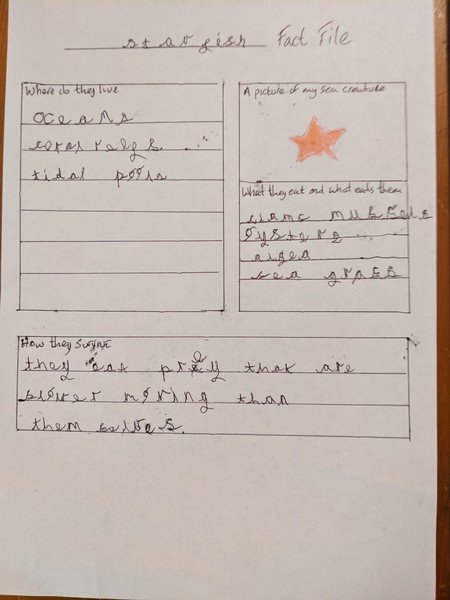 starfish Fact File
Where do they live
oceans
coral reefs
tidal pools
A picture of my sea creature
What they eat and what eats them
clams mussels
oysters
algea
sea grass
How they survive
they eat prey that are
slower moving than
them selves.